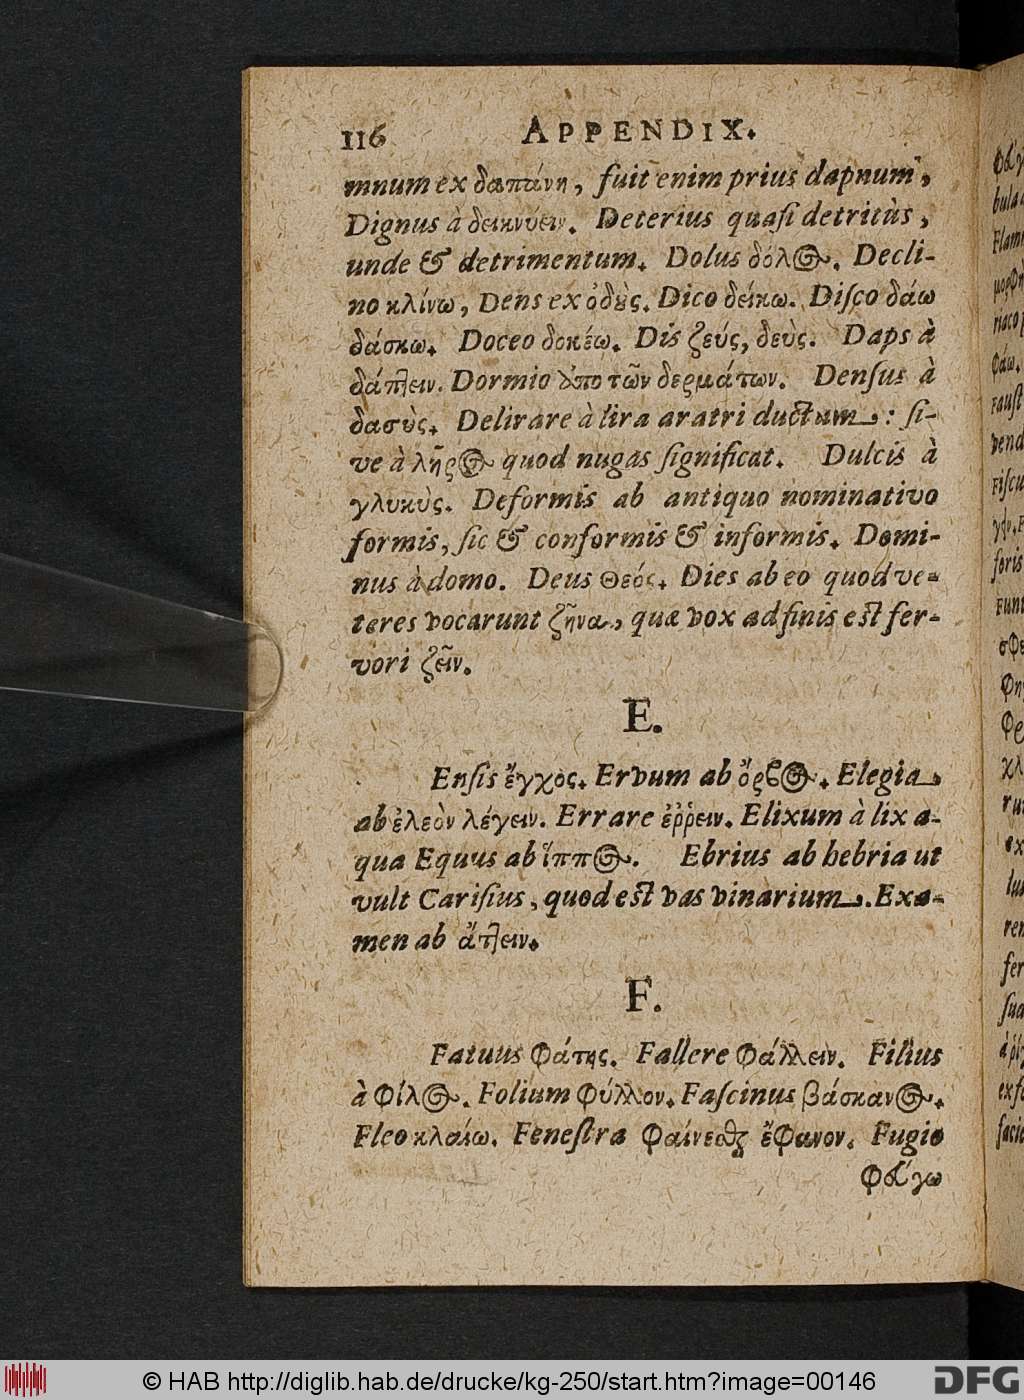 116 APPENDIX.
mnum ex δαπάνη, fuit enim prius dapnum,
Dignus à δεικνύειν. Deterius quaſi detritùs,
unde & detrimentum. Dolus δόλος. Decli-
no κλίνω, Dens ex ὀδȣ̀ς. Dico δείκω. Diſco δάω
δάσκω. Doceo δοκέω. Dis ζεύς, δεὺς. Daps à
δάπτειν. Dormio ἀπο τῶν δερμάτων. Denſus à
δασὺς. Delirare à lira aratri ductum: ſi-
ve à λῆρος quod nugas ſignificat. Dulcis à
γλυκὺς. Deformis ab antiquo nominativo
formis, ſic & conformis & informis. Domi-
nus à domo. Deus Θεός. Dies ab eo quod ve-
teres vocarunt ζῆνα, quæ vox adfinis eſt fer-
vori ζεῖν.
E.
Enſis ἔγχος. Ervum ab ὄροβος. Elegia
ab ἐλεὸν λέγειν. Errare ἐῤῥειν. Elixum à lix a-
qua Equus ab ἵππος. Ebrius ab hebria ut
vult Cariſius, quod eſt vas vinarium. Exa-
men ab ἄπτειν.
F.
Fatuus φάτης. Fallere φάλλειν. Filius
à φίλος. Folium φύλλον. Faſcinus βάσκανος.
Fleo κλαίω. Feneſtra φαίνεσθαι ἔφανον. Fugio
φεύγω
© HAB http://diglib.hab.de/drucke/kg-250/start.htm?image=00146
DFG